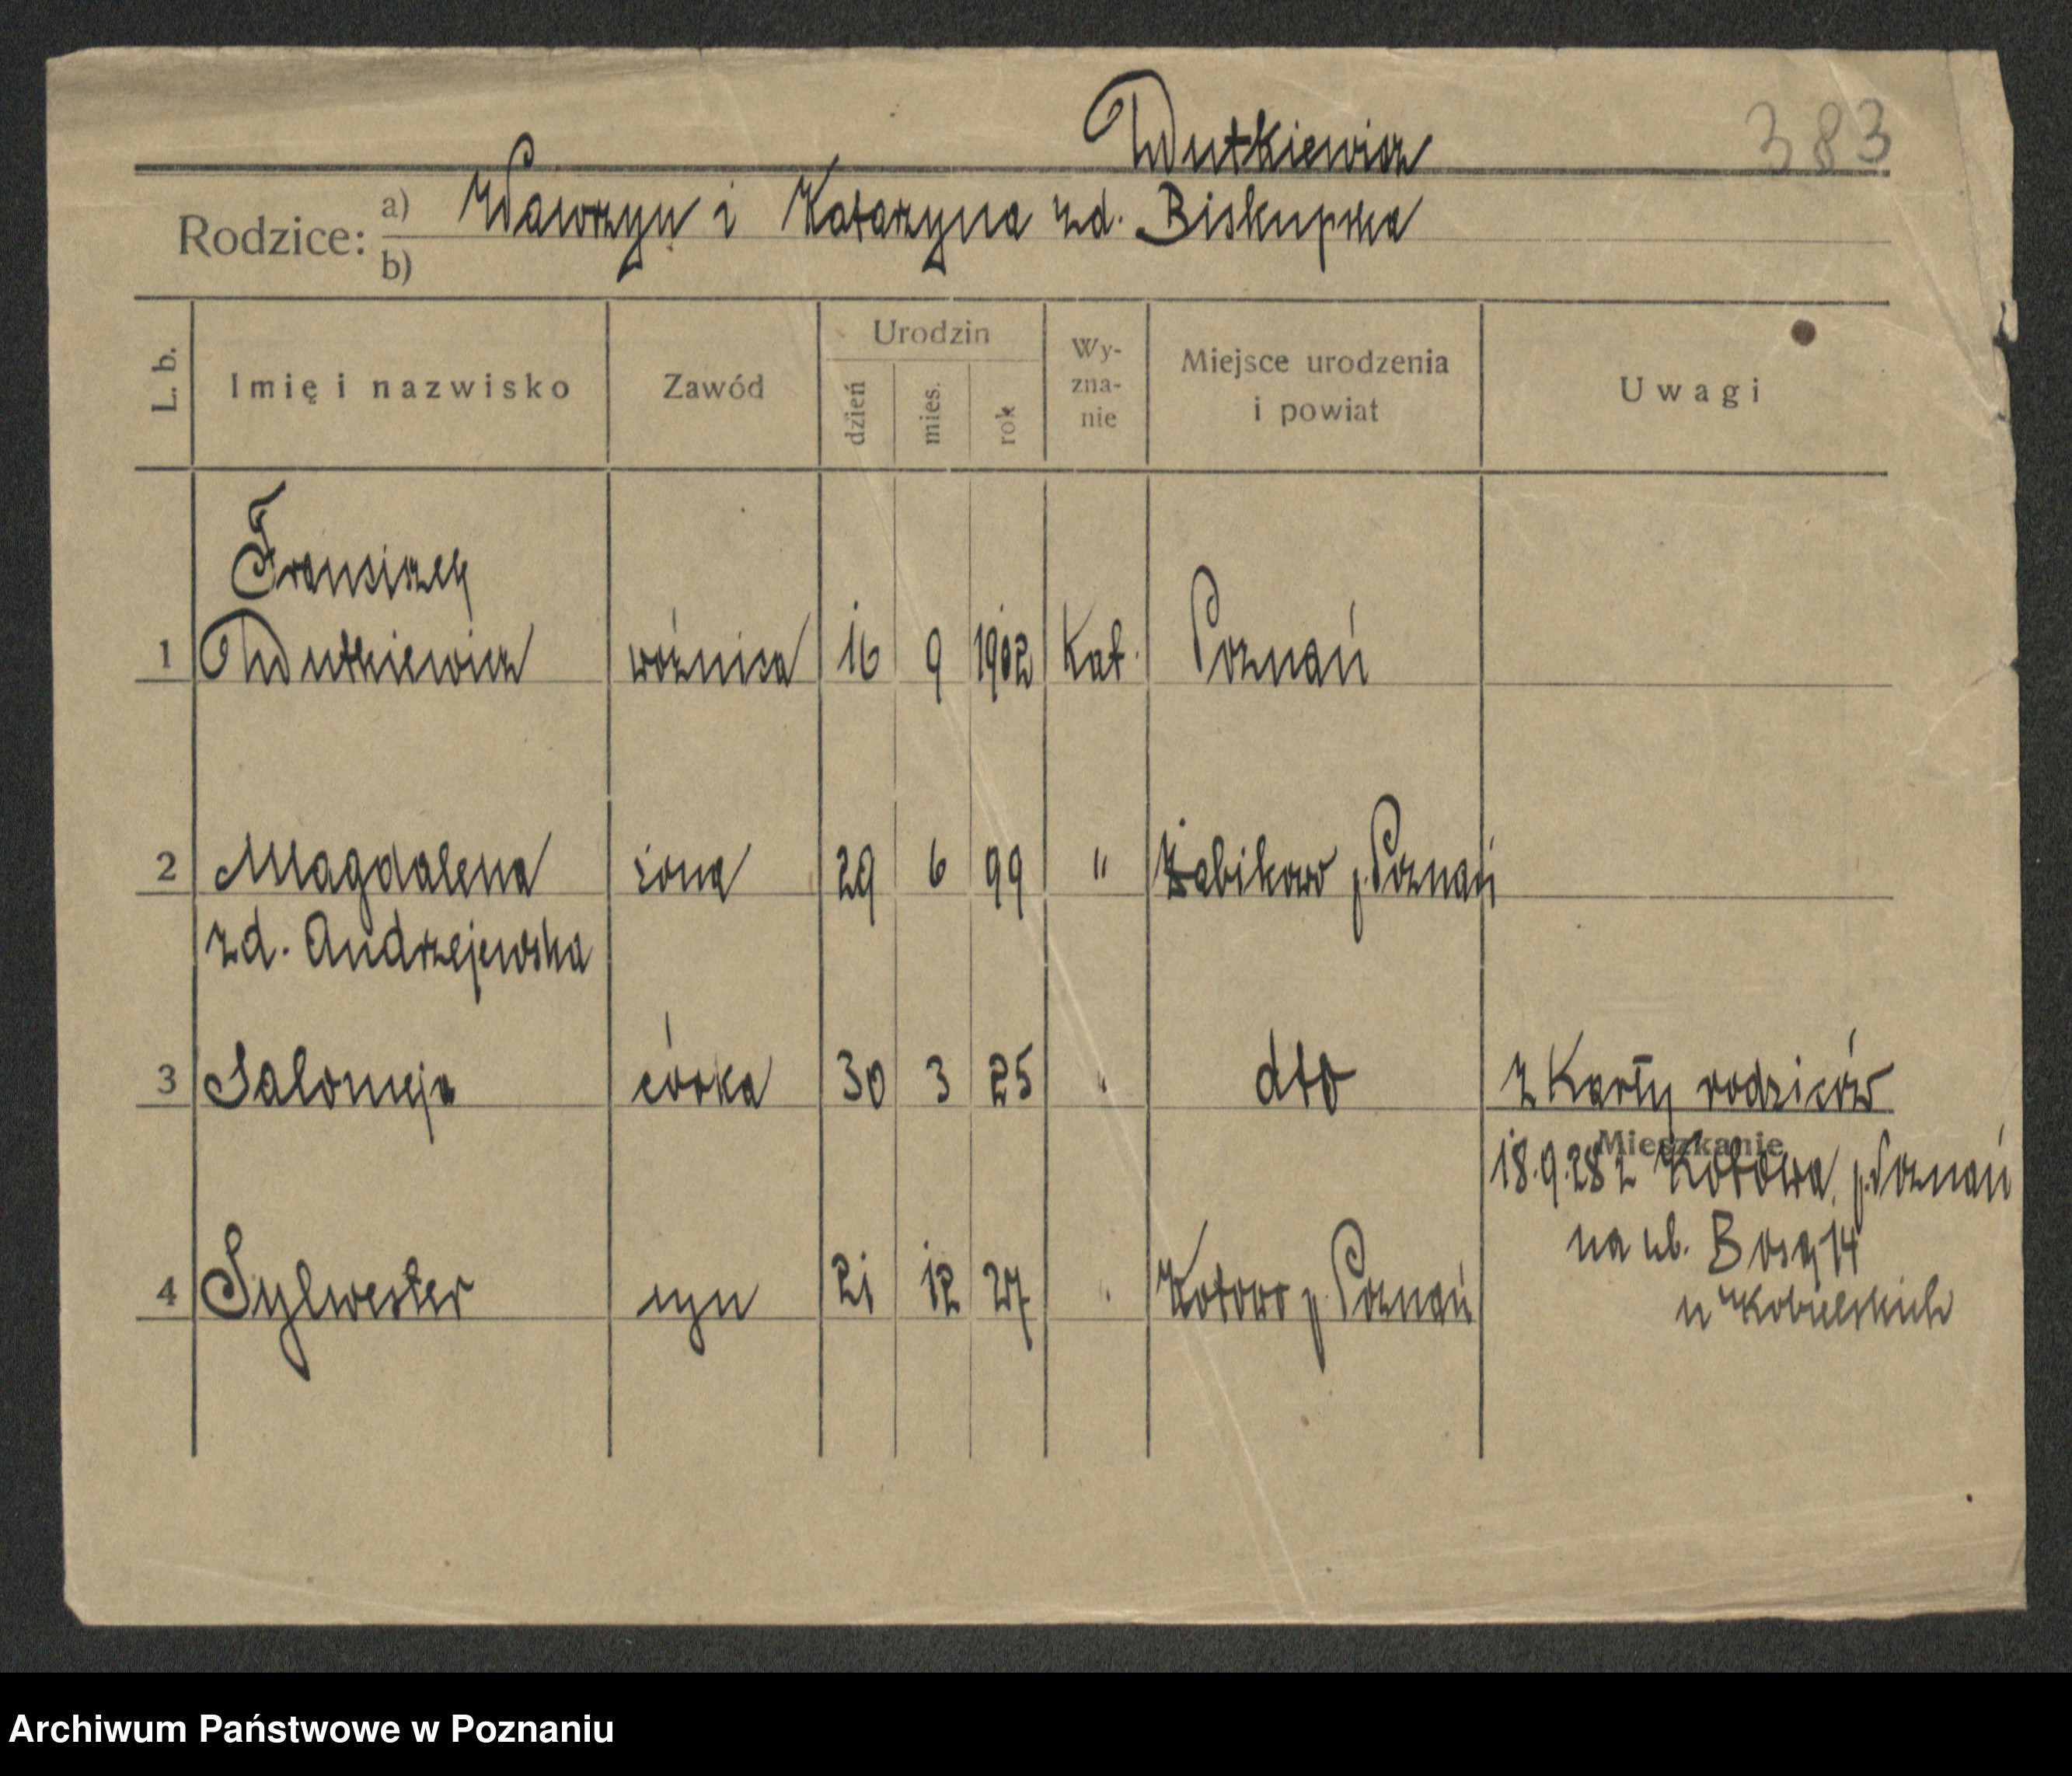 Dutkiewicz
383
Rodzice: a) Wawrzyn i Katarzyna zd. Biskupska
b)
L. b.
Imię i nazwisko
Zawód
Urodzin
dzień
mies.
rok
Wy-
zna-
nie
Miejsce urodzenia
i powiat
Uwagi
Fransiszek
1 Dutkiewicz woźnica 16 9 1902 Kat. Poznań
2 Magdalena żona 29 6 99 " Żabikowo p. Poznań
zd. Andrzejewska
3 Salomeja córka 30 3 25 " dto z Karty rodziców
Mieszkanie
18.9.28 z Kotowa p. Poznań
na ul. 14
u Kobielskich
4 Sylwester syn 21 12 27 " Kotowo p. Poznań
Archiwum Państwowe w Poznaniu